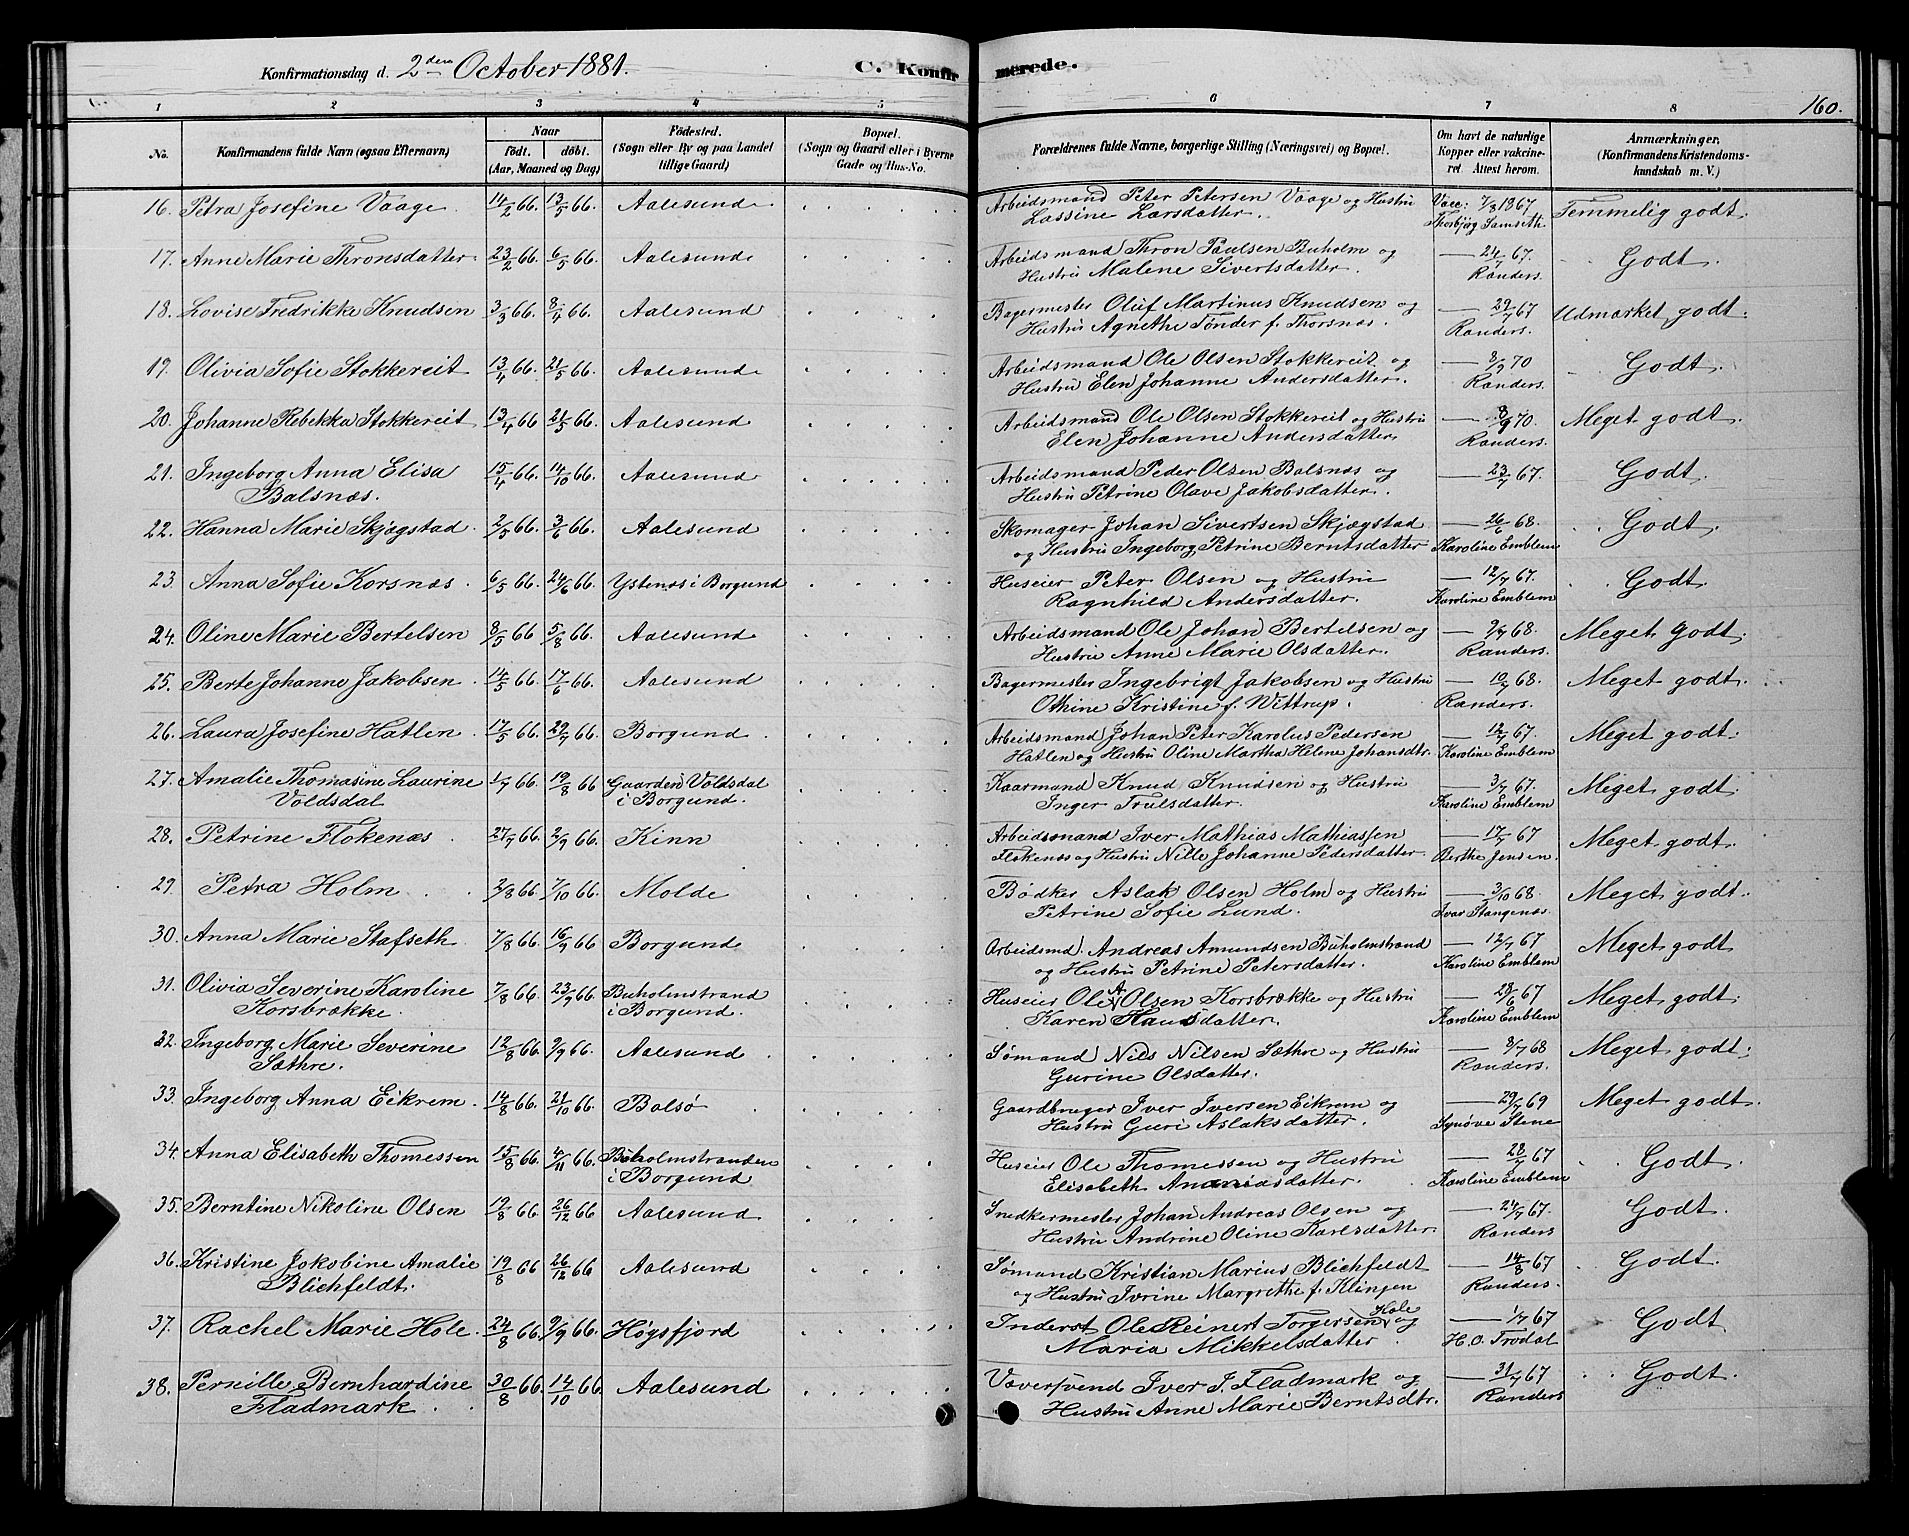 Konfirmationsdag d. 2den October 1881.
C. Konfirmerede.
160.
1 2 3 4 5 6 7 8
No. | Konfirmandens fulde Navn (ogsaa Efternavn) | Naar født. døbt. (Aar, Maaned og Dag) | Fødested. (Sogn eller By og paa Landet tillige Gaard) | Bopæl. (Sogn og Gaard eller i Byerne Gade og Hus-No. | Forældrenes fulde Navne, borgerlige Stilling (Næringsvei) og Bopæl. | Om havt de naturlige Kopper eller vakcineret Attest herom. | Anmærkninger, (Konfirmandens Kristendomskundskab m. V.)
16. Petra Josefine Vaage 14/2 66. 13/5 66. Aalesund Arbeidsmand Peter Petersen Vaage og Hustru Vacc: 7/8 1867 Temmelig godt.
Lassine Larsdatter. Thorbjøg Samseth
17. Anne Marie Thronsdatter 23/2 66. 6/5 66. Aalesund Arbeidsmand Thron Paulsen Buholm og — 24/7 67. Godt.
Hustru Malene Sivertsdatter. Randers.
18. Lovise Fredrikke Knudsen 3/3 66. 8/4 66. Aalesund Bagermester Oluf Martinus Knudsen og — 29/7 67 Udmærket godt.
Hustru Agnethe Tønder f. Thorsnæs. Randers.
19. Olivia Sofie Stokkereit 13/4 66. 21/5 66. Aalesund Arbeidsmand Ole Olsen Stokkereit og — 8/9 70 Godt.
Hustru Elen Johanne Andersdatter. Randers.
20. Johanne Rebekka Stokkereit 13/4 66 21/5 66. Aalesund Arbeidsmand Ole Olsen Stokkereit og Hustru — 8/9 70. Meget godt.
Elen Johanne Andersdatter Randers.
21. Ingeborg Anna Elisa 15/4 66. 14/10 66. Aalesund Arbeidsmand Peder Olsen Balsnæs og — 23/7 67. Godt.
Balsnæs. Hustru Petrine Olave Jakobsdatter.
22. Hanna Marie Skjægstad. 2/5 66. 3/6 66. Aalesund Skomager Johan Sivertsen Skjægstad — 26/6 68. Godt.
og Hustru Ingeborg Petrine Berntsdatter Karoline Emblem
23. Anna Sofie Korsnæs. 6/5 66. 24/6 66. Ystenæs i Borgund Huseier Peter Olsen og Hustru — 12/7 67. Godt.
Ragnhild Andersdatter. Karoline Emblem
24. Oline Marie Bertelsen 8/5 66 5/8 66. Aalesund Arbeidsmand Ole Johan Bertelsen og — 9/7 68. Meget godt.
Hustru Anne Marie Olsdatter. Randers.
25. Berte Johanne Jakobsen. 14/5 66. 17/6 66. Aalesund Bagermester Ingebrigt Jakobsen og Hustru — 10/7 68. Meget godt.
Othine Kristine f. Wittrup. Randers.
26. Laura Josefine Hatlen. 17/5 66. 29/7 66. Borgund. Arbeidsmand Johan Peter Karolus Pedersen — 12/7 67. Meget godt.
Hatlen og Hustru Oline Martha Helene Johansdtr. Karoline Emblem
27. Amalie Thomasine Laurine 1/7 66. 19/8 66 Gaarden Voldsdal Kaarmand Knud Knudsen og Hustru — 3/7 67. Meget godt.
Voldsdal i Borgund. Inger Trulsdatter. Karoline Emblem
28. Petrine Flokenæs 27/7 66. 2/9 66. Kinn Arbeidsmand Iver Mathias Mathiassen — 17/7 67 Meget godt.
Flokenæs og Hustru Nille Johanne Pedersdatter. Berthe Jensen.
29. Petra Holm 2/8 66. 7/10 66. Molde Bødker Aslak Olsen Holm og Hustru — 3/10 68. Meget godt.
Petrine Sofie Lund. Ivar Stangenæs.
30. Anna Marie Stafseth. 7/8 66. 16/9 66. Borgund Arbeidsmd. Andreas Amundsen Buholmstrand — 12/7 67 Meget godt
og Hustru Petrine Petersdatter. Karoline Emblem.
31. Olivia Severine Karoline 7/8 66. 23/9 66. Buholmstrand Huseier Ole A Olsen Korsbrække og Hustru — 28/6 67 Meget godt.
Korsbrække. i Borgund. Karen Hansdatter. Karoline Emblem
32. Ingeborg Marie Severine 12/8 66. 9/9 66. Aalesund Sømand Nils Nilsen Sæthre og Hustru — 8/7 68 Meget godt.
Sæthre. Gurine Olsdatter. Randers.
33. Ingeborg Anna Eikrem. 14/8 66. 21/10 66. Bolsø Gaardbruger Iver Iversen Eikrem og — 29/7 69 Meget godt.
Hustru Guri Aslaksdatter. Synøve Stene
34. Anna Elisabeth Thomessen 15/8 66. 4/11 66. Buholmstranden Huseier Ole Thomessen og Hustru — 28/7 67 Godt.
i Borgund Elisabeth Ananiasdatter. Karoline Emblem
35. Berntine Nikoline Olsen 19/8 66. 26/12 66 Aalesund Snedkermester Johan Andreas Olsen og — 24/7 67. Godt.
Hustru Andrine Oline Karlsdatter. Randers
36. Kristine Jakobine Amalie 19/8 66 26/12 66 Aalesund Sømand Kristian Marius Blichfeldt — 14/8 67 Godt.
Blichfeldt. og Hustru Ivrine Margrethe f. Klingen Randers.
37. Rachel Marie Hole 24/8 66. 9/9 66. Høgsfjord Inderst Ole Reinert Torgersen Hole og — 1/7 67 Godt
Maria Mikkelsdatter H. O. Trodal
38. Pernille Bernhardine 30/8 66. 14/10 66. Aalesund Væversvend Iver J. Fladmark og — 31/7 67 Godt.
Fladmark. Hustru Anne Marie Berntsdtr. Randers